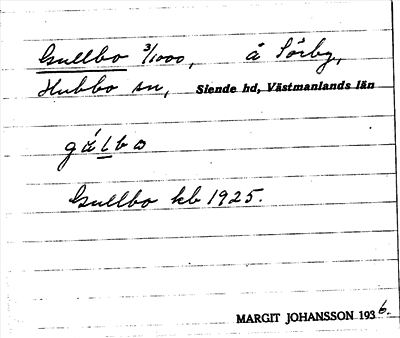 Gullbo 3/1000, å Sörby,
Hubbo sn, Siende hd, Västmanlands län
Gullbo kb 1925.
MARGIT JOHANSSON 1936.